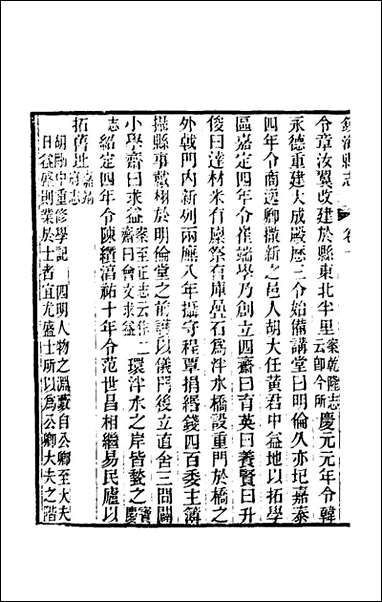 鎮海縣志 卷十
令章汝翼改建於縣東北半里案乾隆志云即今所慶元元年令韓
永德重建大成殿歷三令始備講堂曰明倫久亦圮嘉泰
四年令商逸卿撤新之邑人胡大任黃君中益地以拓學
區嘉定四年令崔端學乃創立四齋曰育英曰養賢曰升
俊曰達材米有廩祭有庫壘石為泮水橋設重門於橋之
外戟門內新列兩廡八年攝守程覃捐緡錢四百委主簿
攝縣事戴栩於明倫堂之前護以儀門後立直舍三間闢
小學齋曰求益案至正志云作二齋曰會文求益環泮水之岸皆甃之寶慶
志紹定四年令陳纘湻祐十年令范世昌相繼易民廬以
拓舊址嘉靖府志
胡剛中重修學記 四明人物之淵藪自公卿至大夫
日益盛則業於士者宜尤盛士所以為公卿大夫之階